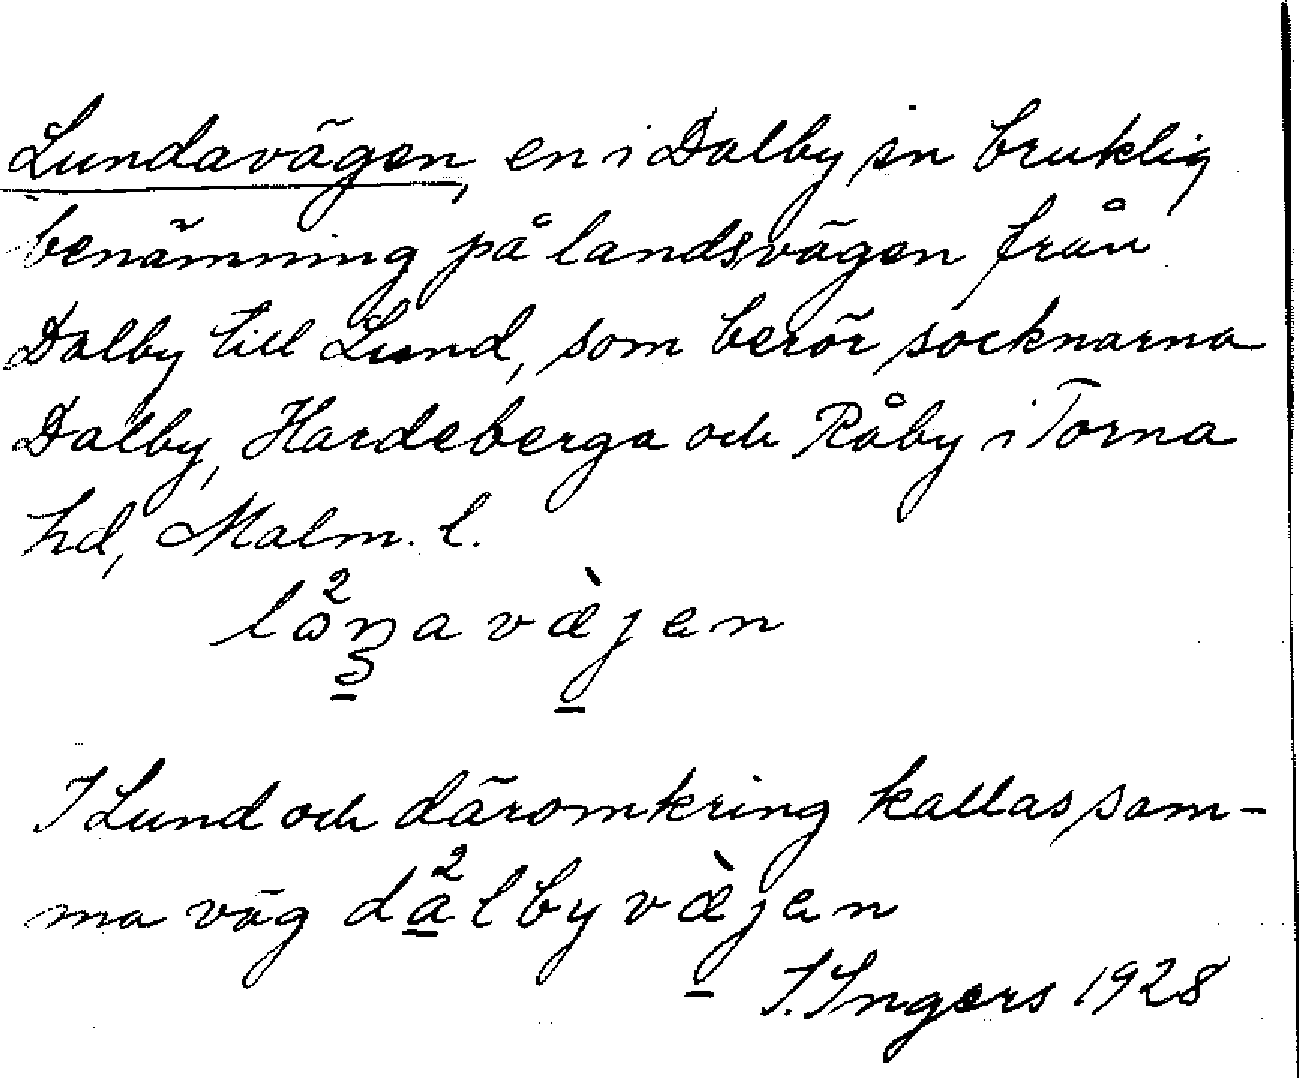 Lundavägen, en i Dalby sn bruklig
benämning på landsvägen från
Dalby till Lund, som berör socknarna
Dalby, Hardeberga och Råby i Torna
hd, Malm. l.
lånavæjen
I Lund och däromkring kallas sam-
ma väg dalbyvæjen
I. Ingers 1928